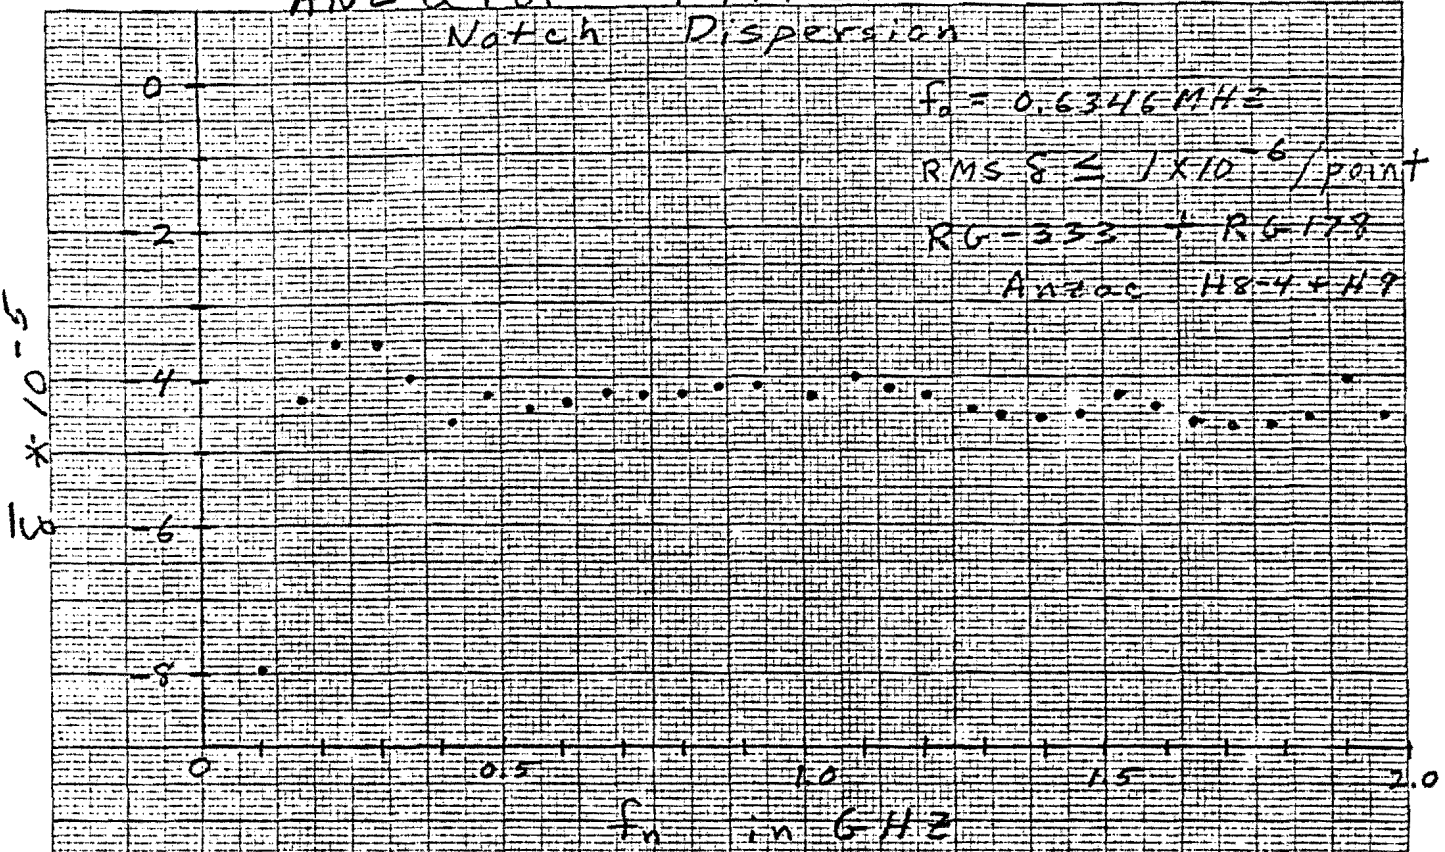 Notch Dispersion
f₀ = 0.6346 MHz
RMS δ ≤ 1 X 10⁻⁶ / point
RG-333 + RG178
Anzac H8-4 + H9
0
-2
-4
-6
-8
* 10⁻⁵
0 0.5 1.0 1.5 2.0
fₙ in GHz